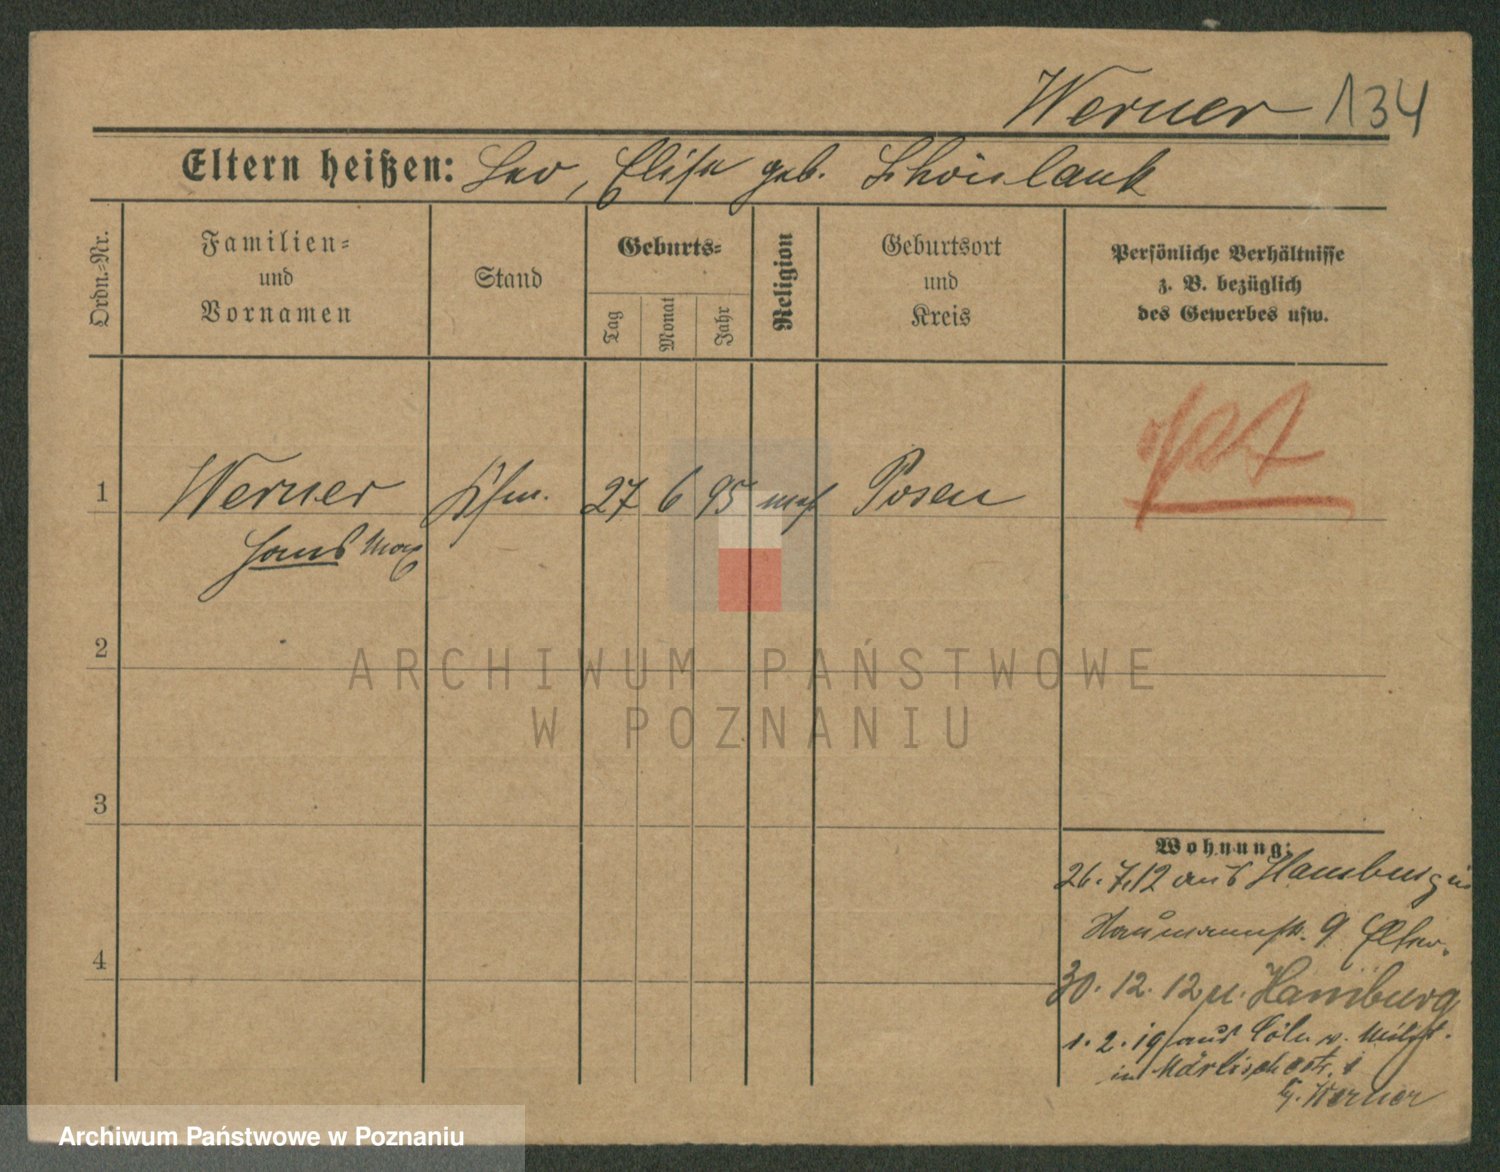 Werner 134
Eltern heißen: Leo, Elise geb. Schönlank
Ordn.-Nr.
Familien-
und
Vornamen
Stand
Geburts-
Tag
Monat
Jahr
Religion
Geburtsort
und
Kreis
Persönliche Verhältnisse
z. B. bezüglich
des Gewerbes usw.
1 Werner Kfm. 27 6 95 mos Posen
Hans Max
2
3
4
Wohnung:
26.7.12 aus Hamburg in
Naumannstr. 9 Eltern.
30.12.12 n. Hamburg
1.2.19 aus Cöln v. Milit.
in Märkischestr. 1
Werner
ARCHIWUM PAŃSTWOWE
W POZNANIU
Archiwum Państwowe w Poznaniu